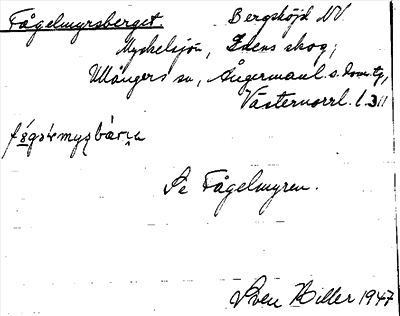 Fågelmyrsberget. Bergshöjd NV.
Myckelsjön, Edens skog,
Ullångers sn, Ångermanl. s. domstg,
Västernorrl. l.
Se Fågelmyren.
Sven Hiller 1947